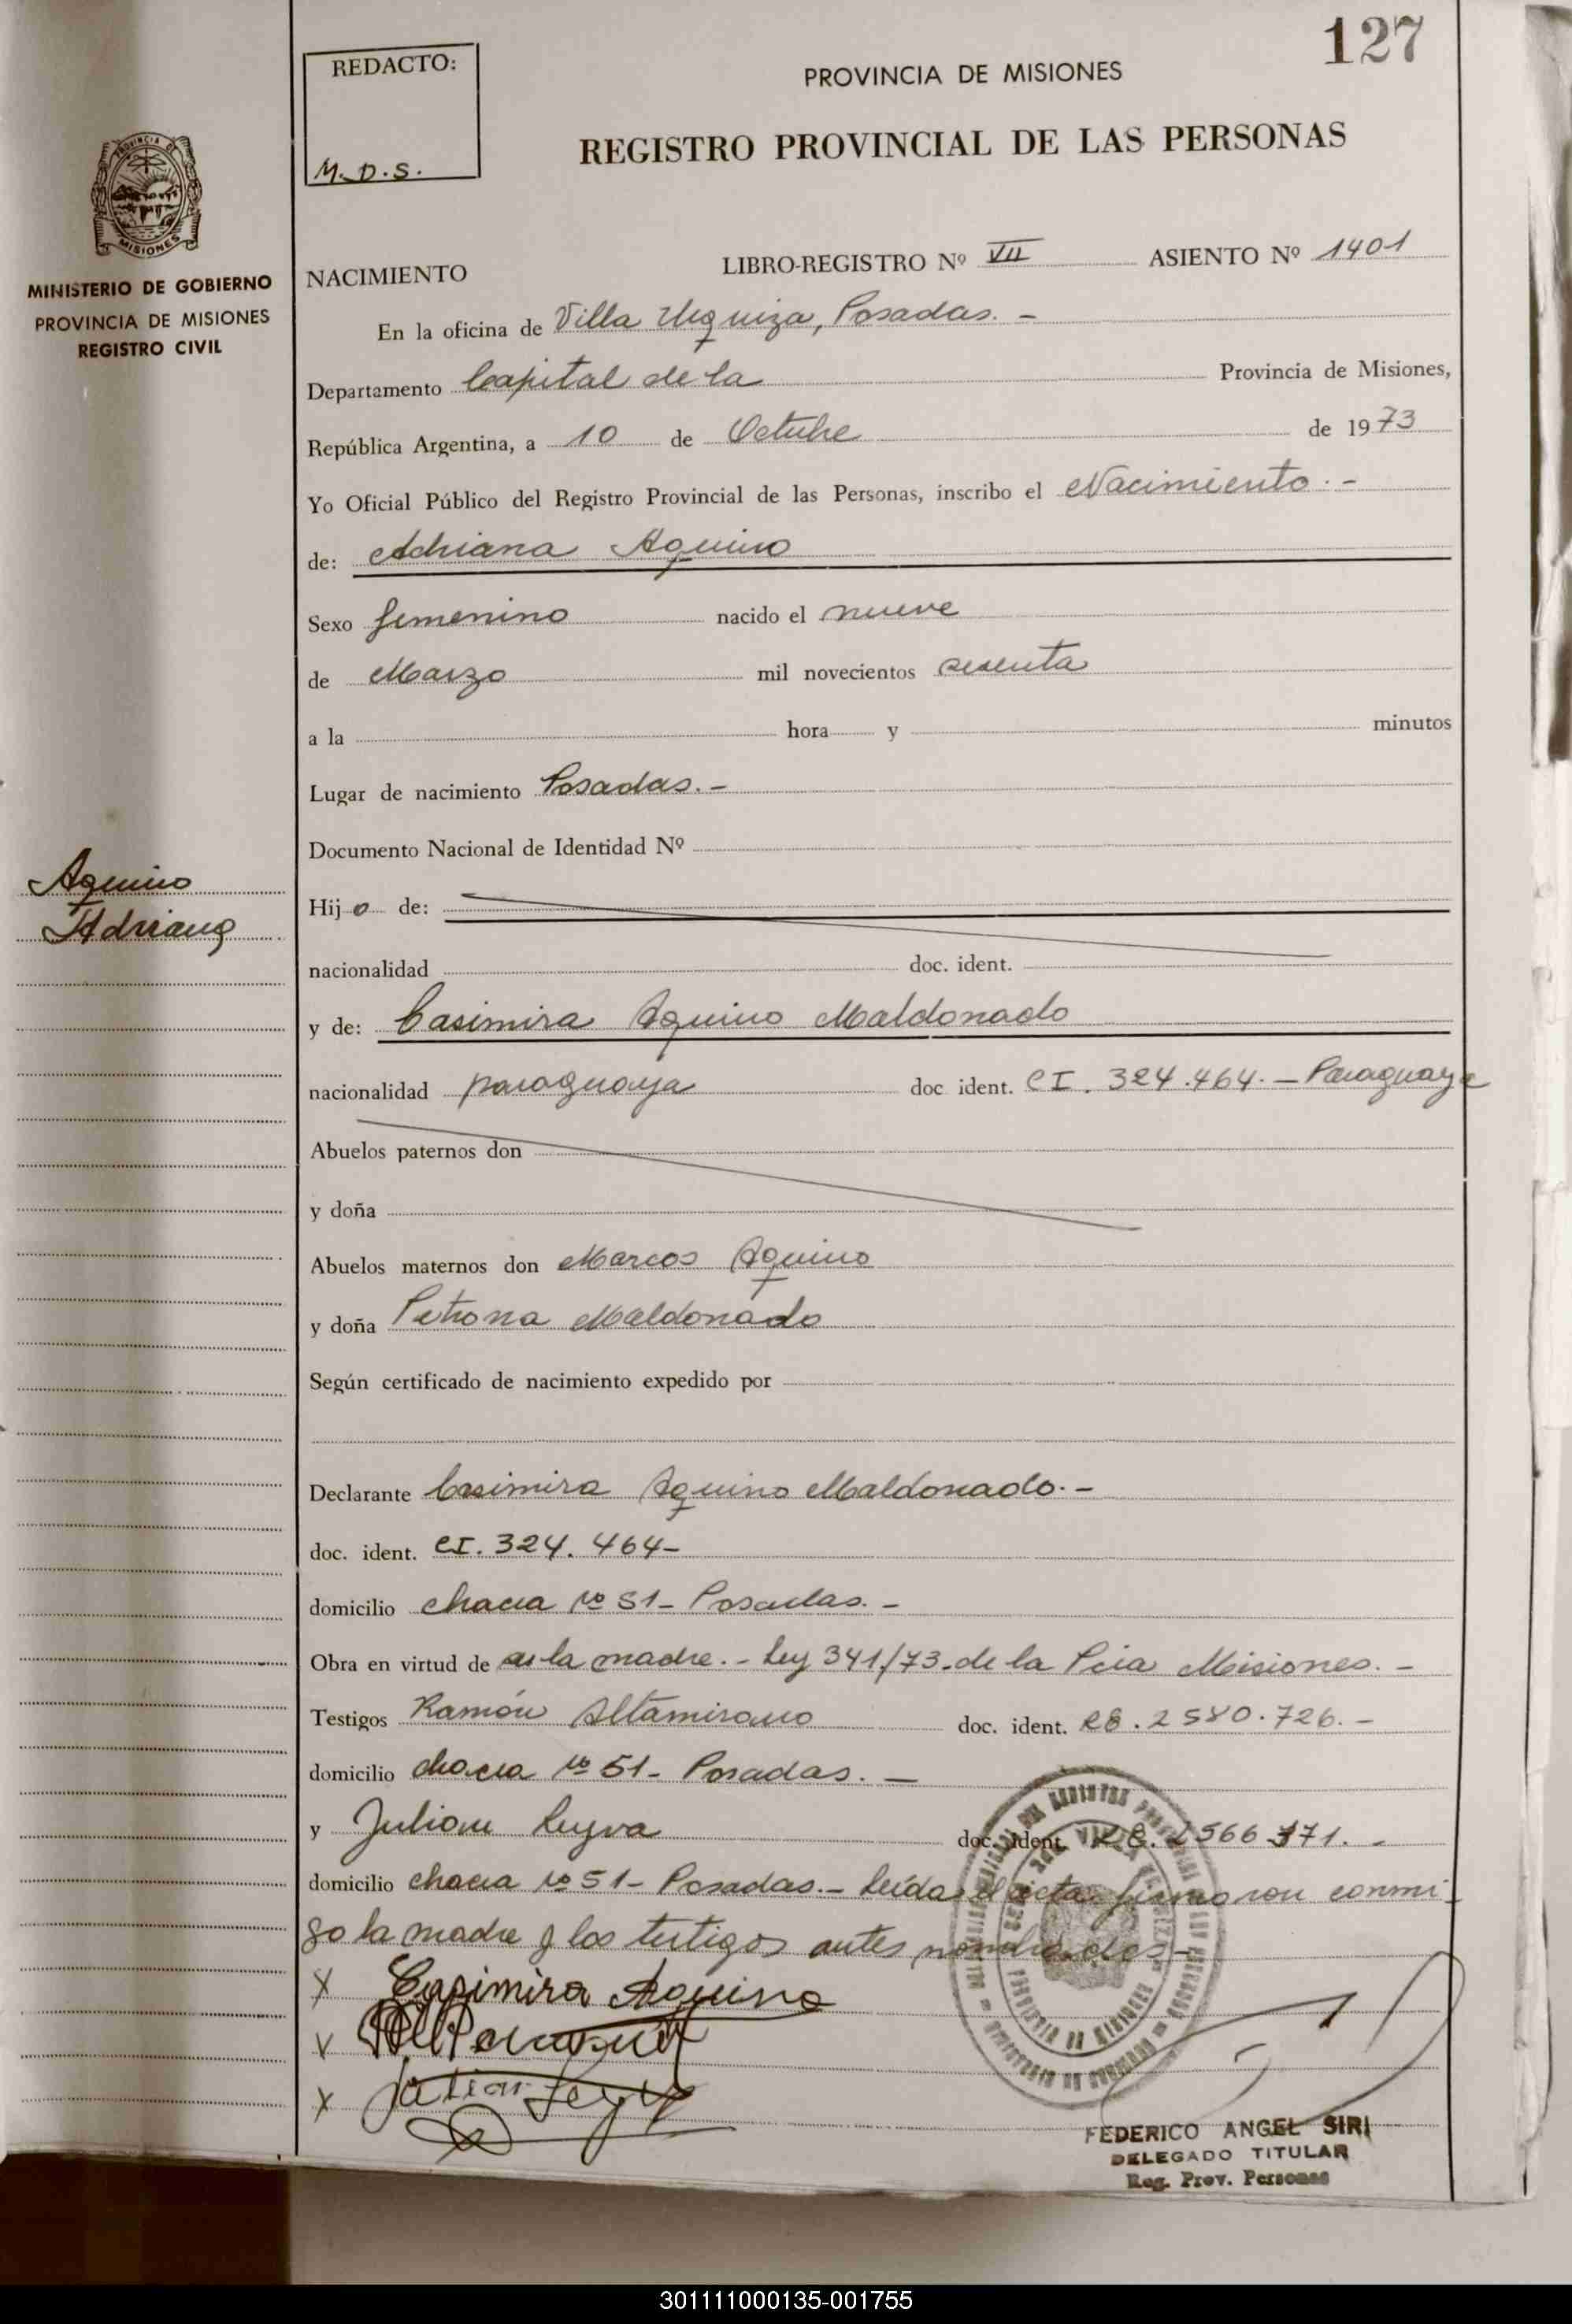 127
REDACTO:
M.D.S.
PROVINCIA DE MISIONES
REGISTRO PROVINCIAL DE LAS PERSONAS
PROVINCIA DE
MISIONES
MINISTERIO DE GOBIERNO
PROVINCIA DE MISIONES
REGISTRO CIVIL
NACIMIENTO LIBRO-REGISTRO Nº VII ASIENTO Nº 1401
En la oficina de Villa Urquiza, Posadas. -
Departamento Capital de la Provincia de Misiones,
República Argentina, a 10 de Octubre de 1973
Yo Oficial Público del Registro Provincial de las Personas, inscribo el Nacimiento. -
de: Adriana Aquino
Sexo femenino nacido el nueve
de Marzo mil novecientos sesenta
a la hora y minutos
Lugar de nacimiento Posadas. -
Documento Nacional de Identidad Nº
Aquino
Adriana
Hijo de:
nacionalidad doc. ident.
y de: Casimira Aquino Maldonado
nacionalidad paraguaya doc. ident. CI. 324.464. - Paraguaya
Abuelos paternos don
y doña
Abuelos maternos don Marcos Aquino
y doña Petrona Maldonado
Según certificado de nacimiento expedido por
Declarante Casimira Aquino Maldonado. -
doc. ident. CI. 324. 464-
domicilio chacra Nº 51- Posadas. -
Obra en virtud de la madre. - Ley 341/73. de la Pcia Misiones. -
Testigos Ramón Altamirano doc. ident. 726. -
domicilio chacra Nº 51- Posadas. -
y Julian Leyva doc. ident. 2566
domicilio chacra Nº 51- Posadas. - Leída el acta firmaron conmi
go la madre y los testigos antes nombrados-
X Casimira Aquino
X
X Julian Leyva
PROVINCIA DE MISIONES
FEDERICO ANGEL SIRI
DELEGADO TITULAR
Reg. Prov. Personas
301111000135-001755